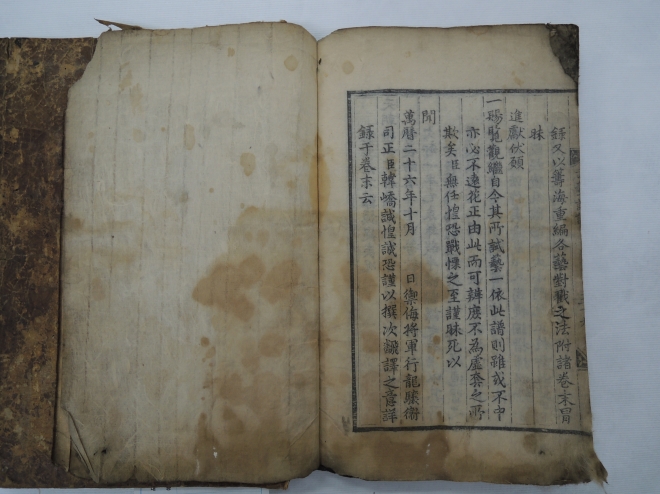 錄又以籌海重編各藝對戰之法附諸卷末冒
昧
進獻伏願
一賜覽觀繼自今其所試藝一依此譜則雖或不中
亦必不遠花正由此而可辨庶不為虛棄之所
欺矣臣無任惶恐戰慄之至謹昧死以
聞
萬曆二十六年十月 日禦侮將軍行龍驤衛
司正臣韓嶠誠惶誠恐謹以撰次飜譯之意詳
錄于卷末云